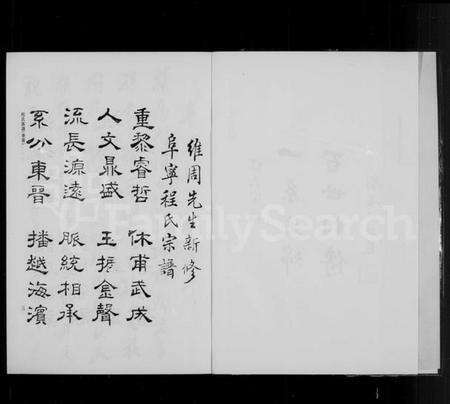 維周先生新修
阜寧程氏宗譜
重黎睿哲 休甫武成
人文鼎盛 玉振金聲
流長源遠 脈統相承
系分東晉 播越海濱
FamilySearch